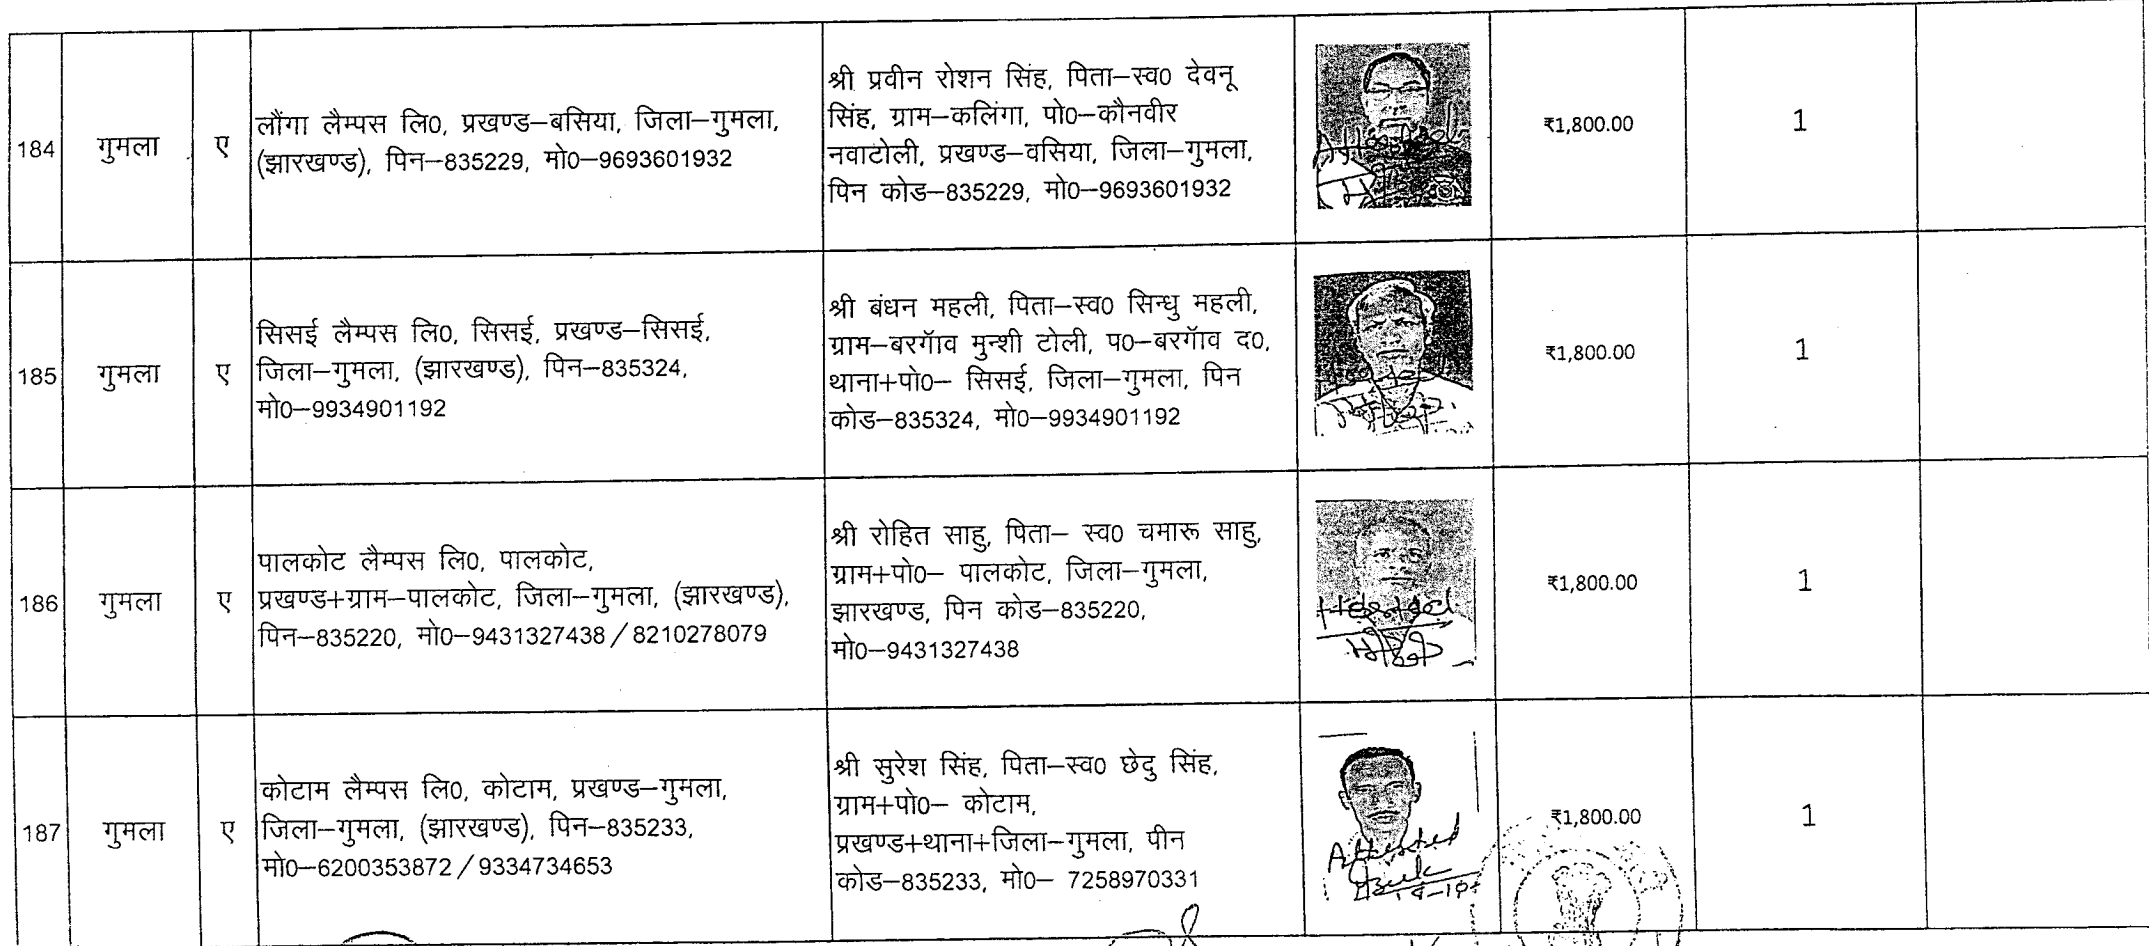 184
गुमला
ए
लौंगा लैम्पस लि0, प्रखण्ड–बसिया, जिला–गुमला,
(झारखण्ड), पिन–835229, मो0–9693601932
श्री प्रवीन रोशन सिंह, पिता–स्व0 देवनू
सिंह, ग्राम–कलिंगा, पो0–कौनवीर
नवाटोली, प्रखण्ड–वसिया, जिला–गुमला,
पिन कोड–835229, मो0–9693601932
Attested
₹1,800.00
1
185
गुमला
ए
सिसई लैम्पस लि0, सिसई, प्रखण्ड–सिसई,
जिला–गुमला, (झारखण्ड), पिन–835324,
मो0–9934901192
श्री बंधन महली, पिता–स्व0 सिन्धु महली,
ग्राम–बरगॉव मुन्शी टोली, प0–बरगॉव द0,
थाना+पो0– सिसई, जिला–गुमला, पिन
कोड–835324, मो0–9934901192
₹1,800.00
1
186
गुमला
ए
पालकोट लैम्पस लि0, पालकोट,
प्रखण्ड+ग्राम–पालकोट, जिला–गुमला, (झारखण्ड),
पिन–835220, मो0–9431327438 / 8210278079
श्री रोहित साहु, पिता– स्व0 चमारू साहु,
ग्राम+पो0– पालकोट, जिला–गुमला,
झारखण्ड, पिन कोड–835220,
मो0–9431327438
Attested
₹1,800.00
1
187
गुमला
ए
कोटाम लैम्पस लि0, कोटाम, प्रखण्ड–गुमला,
जिला–गुमला, (झारखण्ड), पिन–835233,
मो0–6200353872 / 9334734653
श्री सुरेश सिंह, पिता–स्व0 छेदु सिंह,
ग्राम+पो0– कोटाम,
प्रखण्ड+थाना+जिला–गुमला, पीन
कोड–835233, मो0– 7258970331
Attested
₹1,800.00
1